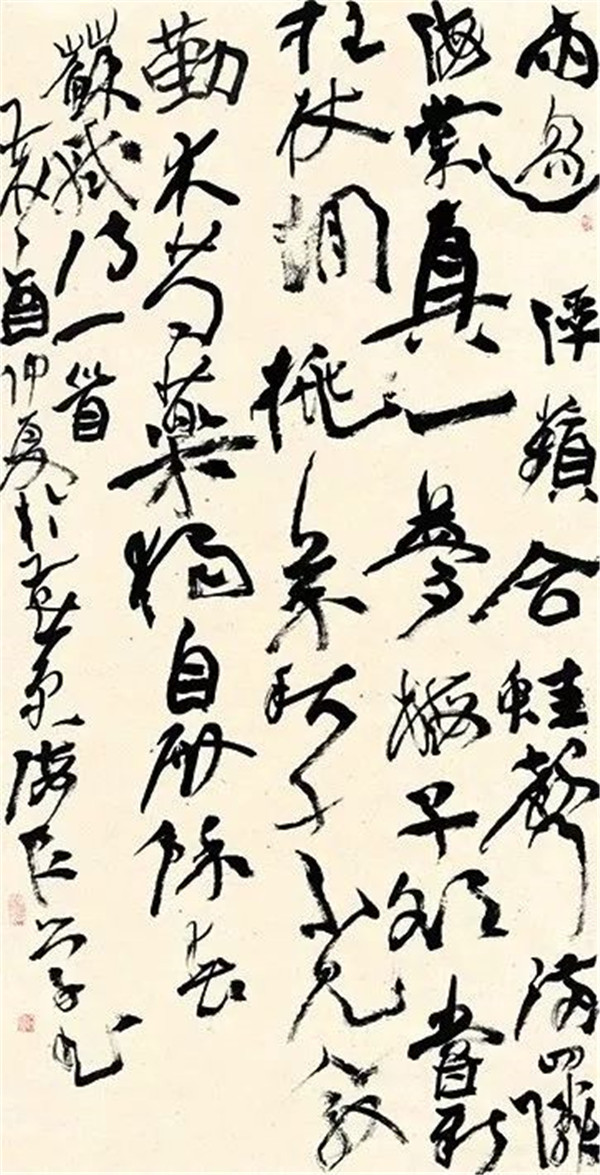 雨過浮蘋合蛙聲滿四鄰
海棠真一夢梅子欲嘗新
拄杖閒挑菜秋千不見人殷
勤木芍藥獨自殿餘春
蘇軾詩一首
酉仲夏於燕京學書